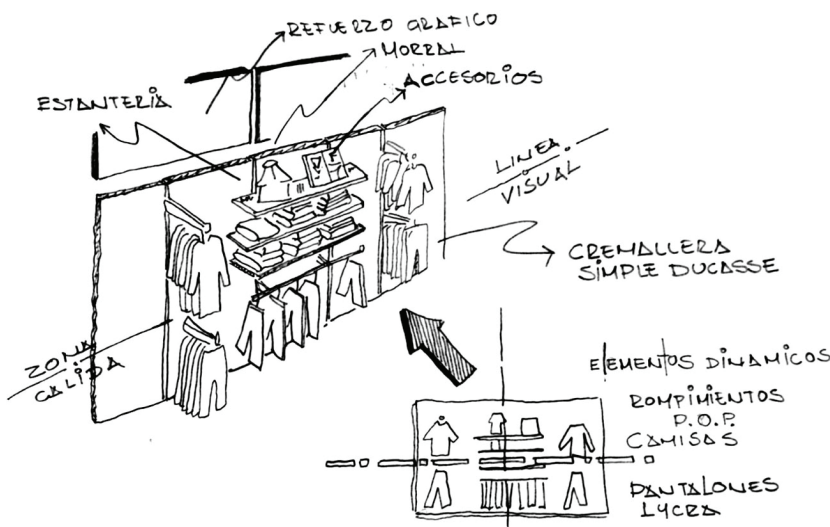 REFUERZO GRAFICO
MORRAL
ACCESORIOS
ESTANTERIA
LINEA
VISUAL
CREMALLERA
SIMPLE DUCASSE
ZONA
CALIDA
ELEMENTOS DINAMICOS
ROMPIMIENTOS
P.O.P.
CAMISAS
PANTALONES
LYCRA